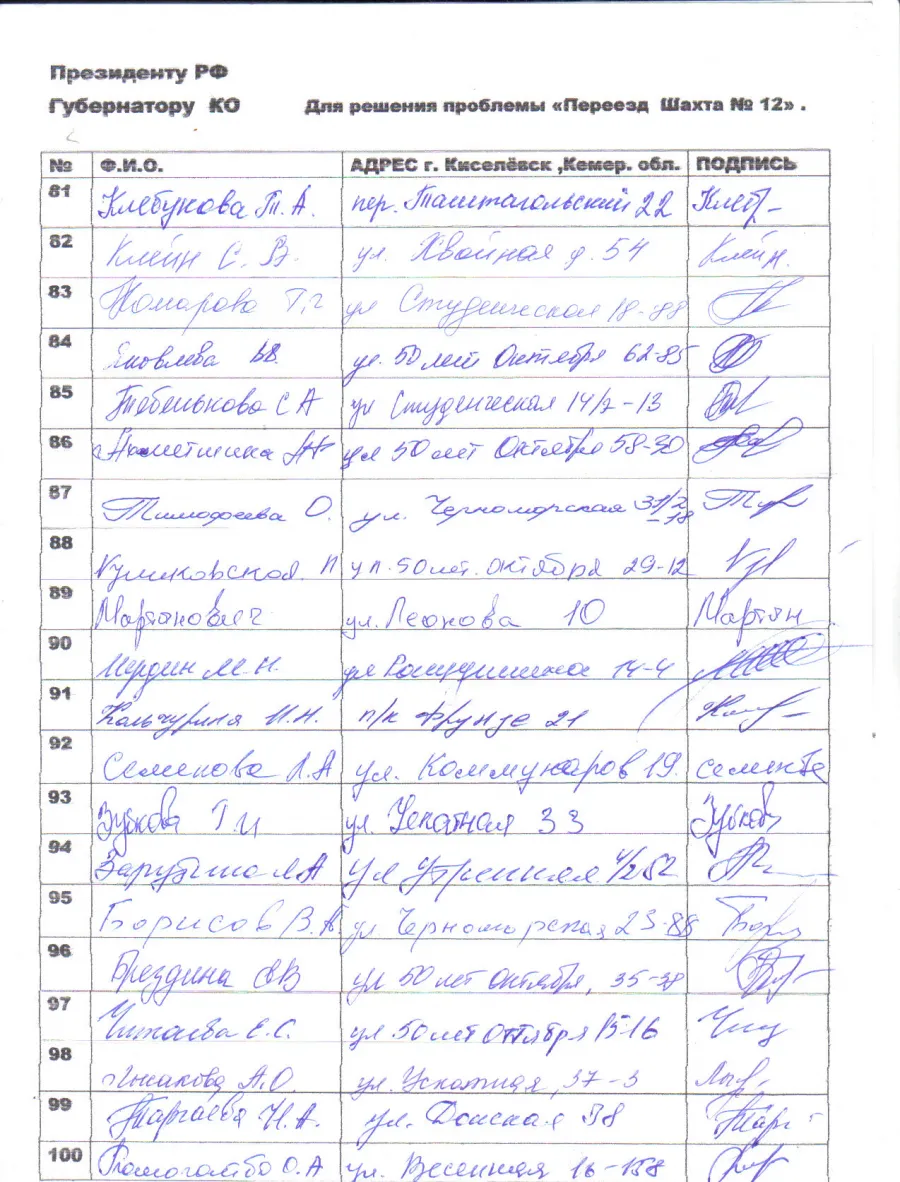 Президенту РФ
Губернатору КО Для решения проблемы «Переезд Шахта № 12» .
№ Ф.И.О. АДРЕС г. Киселёвск ,Кемер. обл. ПОДПИСЬ
81 Клебукова Т.А. пер. Таштагольский 22 Клеб
82 Клейн С. В. ул. Хвойная д. 54 Клейн.
83 Комарова Т.Г ул Студенческая 18-88
84 Яковлева ул. 50 лет Октября 62-85
85 Тебенькова С А ул Студенческая 14/2-13
86 ул 50 лет Октября 58-30
87 Тимофеева О. ул. Черноморская 31/2 -78
88 ул. 50 лет. октября 29-12
89 Мартянович ул. Леонова 10 Мартян
90 М.Н. 14-4
91 Кальчугина Н.Н. п/к Фрунзе 21
92 Семенова Л.А ул. Коммунаров 19.
93 Зубкова Т И ул. Ускатная 33 Зубков
94 Зарубина Л.А ул Утренняя 4/2 52
95 Борисов В.А. ул. Черноморская 23-88 Бор
96 Брездина ул 50 лет Октября, 35-38
97 Читаева Е.С. ул. 50 лет Октября 15-16
98 А.О. ул. Ускатная, 37-3
99 Таргаева Н.А. ул. Донская 38 Тарг
100 О.А ул. Весенняя 16-158